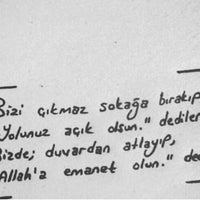 Bizi çıkmaz sokağa bırakıp
Yolunuz açık olsun." dediler
Bizde; duvardan atlayıp,
Allah'a emanet olun." de